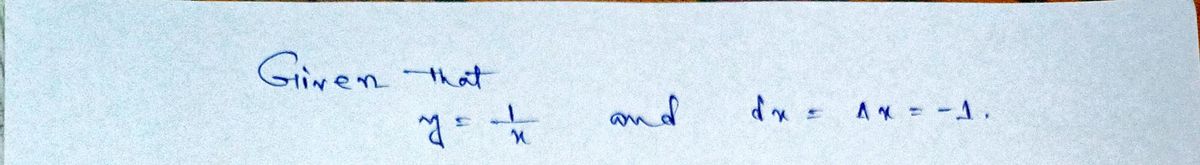 Given that
y = 1/x and dx = Δx = -1.